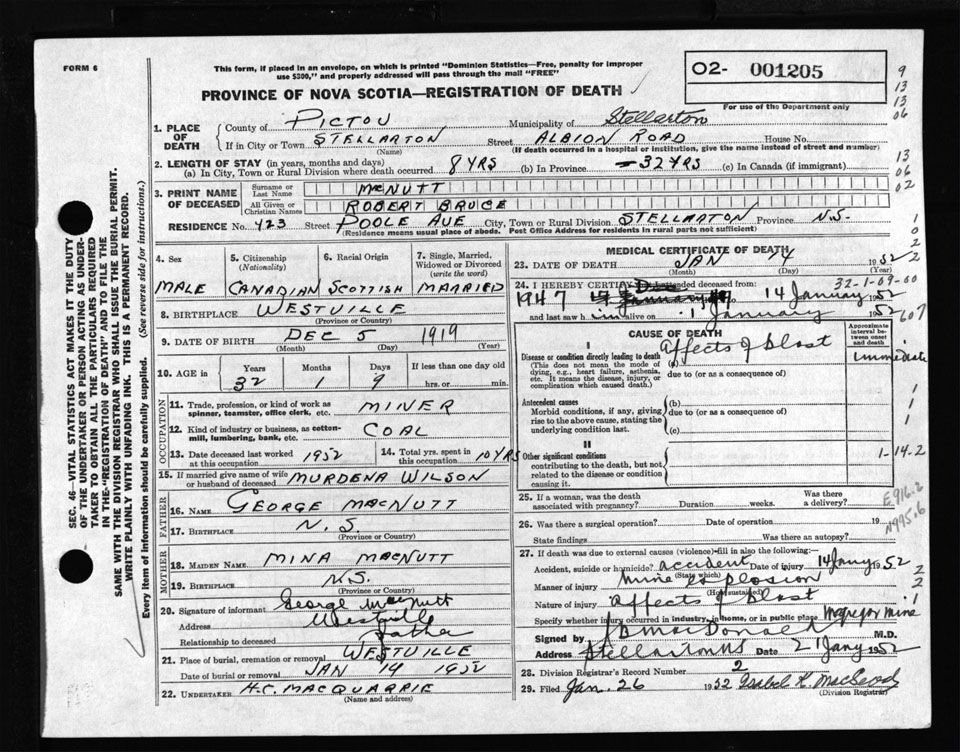 FORM 6
This form, if placed in an envelope, on which is printed "Dominion Statistics—Free, penalty for improper
use $300," and properly addressed will pass through the mail "FREE"
PROVINCE OF NOVA SCOTIA—REGISTRATION OF DEATH
02- 001205
For use of the Department only
9
13
13
06
13
06
02
1
0
2
2
1. PLACE OF DEATH
County of PICTOU Municipality of Stellarton
If in City or Town STELLARTON Street ALBION ROAD House No.
(Name) (If death occurred in a hospital or institution, give the name instead of street and number)
2. LENGTH OF STAY (in years, months and days)
(a) In City, Town or Rural Division where death occurred 8 YRS (b) In Province 32 YRS (c) In Canada (if immigrant)
3. PRINT NAME OF DECEASED
Surname or Last Name MCNUTT
All Given or Christian Names ROBERT BRUCE
RESIDENCE No. 423 Street POOLE AVE City, Town or Rural Division STELLARTON Province N.S.
(Residence means usual place of abode. Post Office Address for residents in rural parts not sufficient)
4. Sex
MALE
5. Citizenship
(Nationality)
CANADIAN
6. Racial Origin
SCOTTISH
7. Single, Married, Widowed or Divorced
(write the word)
MARRIED
8. BIRTHPLACE WESTVILLE
(Province or Country)
9. DATE OF BIRTH DEC 5 1919
(Month) (Day) (Year)
10. AGE in
Years Months Days If less than one day old
32 1 9 hrs. or min.
OCCUPATION
11. Trade, profession, or kind of work as
spinner, teamster, office clerk, etc. MINER
12. Kind of industry or business, as cotten-
mill, lumbering, bank, etc. COAL
13. Date deceased last worked
at this occupation 1952
14. Total yrs. spent in
this occupation 10 YRS
15. If married give name of wife
or husband of deceased MURDENA WILSON
FATHER
16. NAME GEORGE MACNUTT
17. BIRTHPLACE N.S
(Province or Country)
MOTHER
18. MAIDEN NAME MINA MACNUTT
19. BIRTHPLACE N.S.
(Province or Country)
20. Signature of informant George MacNutt
Address Westville
Relationship to deceased Father
21. Place of burial, cremation or removal WESTVILLE
Date of burial or removal JAN 19 1952
22. UNDERTAKER H.C. MACQUARRIE
(Name and address)
MEDICAL CERTIFICATE OF DEATH
23. DATE OF DEATH JAN 14 1952
(Month) (Day) (Year)
24. I HEREBY CERTIFY attended deceased from:
32-1-09-60
1947 14 January 1952
and last saw h im alive on January 1952
607
CAUSE OF DEATH
Approximate interval between onset and death
I
Disease or condition directly leading to death
(This does not mean the mode of dying, e.g., heart failure, asthenia, etc. It means the disease, injury, or complication which caused death.)
(a) affects of blast immediate
due to (or as a consequence of)
Antecedent causes
Morbid conditions, if any, giving rise to the above cause, stating the underlying condition last.
(b)
due to (or as a consequence of)
(c)
1
1
1
II
Other significant conditions
contributing to the death, but not related to the disease or condition causing it.
1-14-2
25. If a woman, was the death
associated with pregnancy? Duration weeks. Was there a delivery?
E916.2
N995.6
26. Was there a surgical operation? Date of operation 19
State findings Was there an autopsy?
27. If death was due to external causes (violence)-fill in also the following:
Accident, suicide or homicide? accident Date of injury 14 Jany 1952
(State which)
Manner of injury mine explosion
(How sustained)
Nature of injury affects of blast
Specify whether injury occurred in industry, in home, or in public place McGregor mine
2
2
1
Signed by MacDonald M.D.
Address Stellarton NS Date 21 Jany 1952
28. Division Registrar's Record Number 2
29. Filed Jan. 26 1952 Isabel K. MacLeod
(Division Registrar)
SEC. 46 - VITAL STATISTICS ACT MAKES IT THE DUTY
OF THE UNDERTAKER OR PERSON ACTING AS UNDER-
TAKER TO OBTAIN ALL THE PARTICULARS REQUIRED
IN THE "REGISTRATION OF DEATH" AND TO FILE THE
SAME WITH THE DIVISION REGISTRAR WHO SHALL ISSUE THE BURIAL PERMIT.
WRITE PLAINLY WITH UNFADING INK. THIS IS A PERMANENT RECORD.
Every item of information should be carefully supplied. (See reverse side for instructions.)